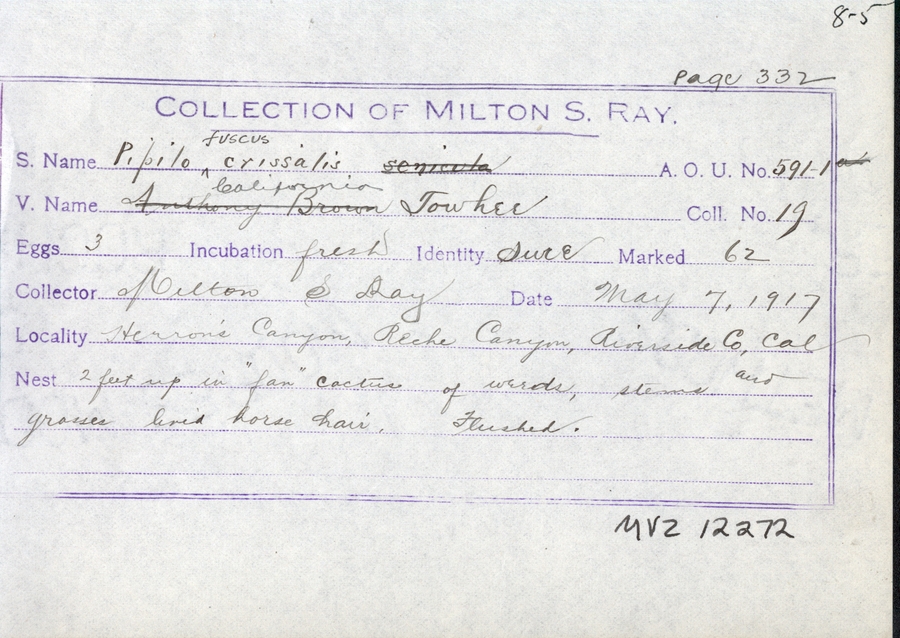 8-5
Page 332
COLLECTION OF MILTON S. RAY.
fuscus
S. Name Pipilo ^ crissalis senicula A. O. U. No. 591-1a
California
V. Name Anthony Brown Towhee Coll. No. 19
Eggs 3 Incubation fresh Identity Sure Marked 62
Collector Milton S Ray Date May 7, 1917
Locality Herron's Canyon, Reche Canyon, Riverside Co, Cal
Nest 2 feet up in "fan" cactus of weeds, stems and
grasses lined horse hair. Flushed.
MVZ 12272